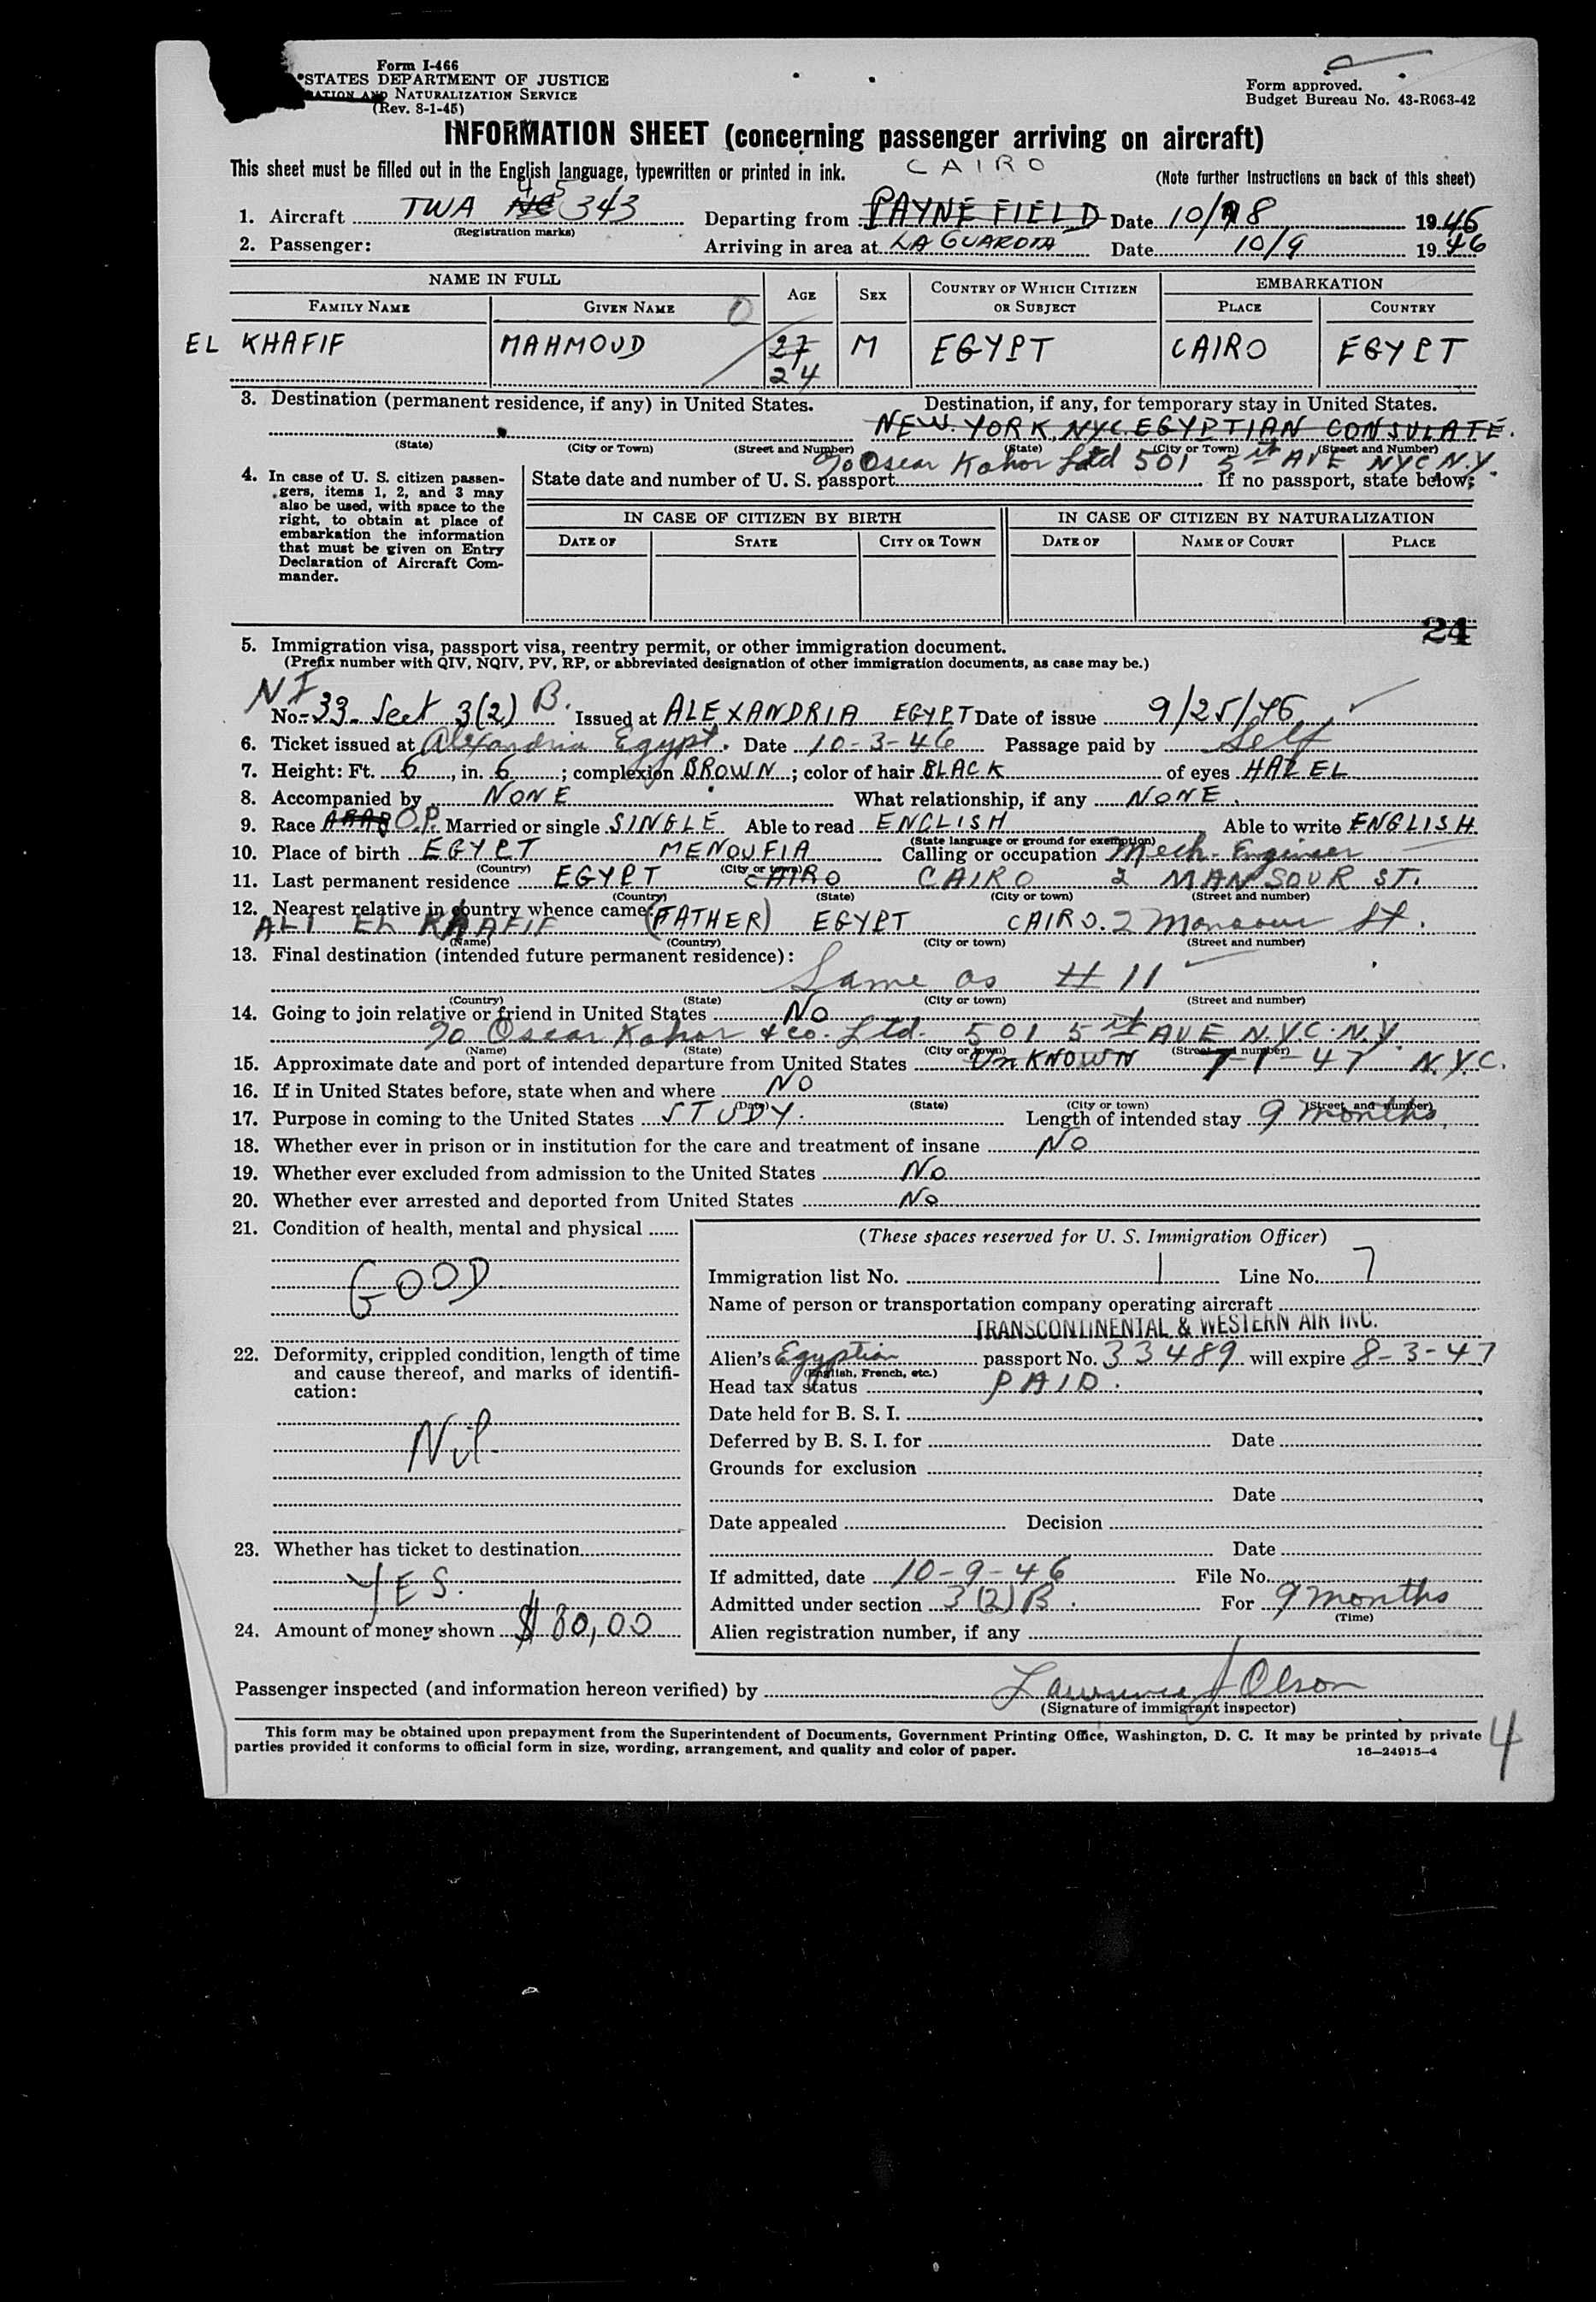 Form I-466
STATES DEPARTMENT OF JUSTICE
AND NATURALIZATION SERVICE
(Rev. 8-1-45)
Form approved.
Budget Bureau No. 43-R063-42
INFORMATION SHEET (concerning passenger arriving on aircraft)
This sheet must be filled out in the English language, typewritten or printed in ink. CAIRO (Note further instructions on back of this sheet)
1. Aircraft TWA NC 45 343 Departing from PAYNE FIELD Date 10/8 1946
(Registration marks)
2. Passenger: Arriving in area at LA GUARDIA Date 10/9 1946
NAME IN FULL AGE SEX COUNTRY OF WHICH CITIZEN OR SUBJECT EMBARKATION
FAMILY NAME GIVEN NAME PLACE COUNTRY
EL KHAFIF MAHMOUD 27 M EGYPT CAIRO EGYPT
24
3. Destination (permanent residence, if any) in United States. Destination, if any, for temporary stay in United States.
NEW YORK NYC EGYPTIAN CONSULATE.
(State) (City or Town) (Street and Number) (State) (City or Town) (Street and Number)
℅ Oscar Kahor Ltd 501 5th AVE NYC N.Y.
4. In case of U. S. citizen passengers, items 1, 2, and 3 may also be used, with space to the right, to obtain at place of embarkation the information that must be given on Entry Declaration of Aircraft Commander.
State date and number of U. S. passport If no passport, state below:
IN CASE OF CITIZEN BY BIRTH IN CASE OF CITIZEN BY NATURALIZATION
DATE OF STATE CITY OR TOWN DATE OF NAME OF COURT PLACE
24
5. Immigration visa, passport visa, reentry permit, or other immigration document.
(Prefix number with QIV, NQIV, PV, RP, or abbreviated designation of other immigration documents, as case may be.)
NI
No. 33 Sect 3(2) B. Issued at ALEXANDRIA EGYPT Date of issue 9/25/46
6. Ticket issued at Alexandria Egypt. Date 10-3-46 Passage paid by Self
7. Height: Ft. 6, in. 6; complexion BROWN; color of hair BLACK of eyes HAZEL
8. Accompanied by NONE What relationship, if any NONE.
9. Race ARAB O.P. Married or single SINGLE Able to read ENGLISH Able to write ENGLISH
(State language or ground for exemption)
10. Place of birth EGYPT MENOUFIA Calling or occupation Mech. Engineer
(Country) (City or town)
11. Last permanent residence EGYPT CAIRO CAIRO 2 MANSOUR ST.
(Country) (State) (City or town) (Street and number)
12. Nearest relative in country whence came:
ALI EL KHAFIF (FATHER) EGYPT CAIRO. 2 Mansour St.
(Name) (Country) (City or town) (Street and number)
13. Final destination (intended future permanent residence):
Same as # 11
(Country) (State) (City or town) (Street and number)
14. Going to join relative or friend in United States No
℅ Oscar Kahor & Co. Ltd. 501 5th AVE N.Y.C. N.Y.
(Name) (State) (City or town) (Street and number)
15. Approximate date and port of intended departure from United States UnKNOWN 7-1-47 N.Y.C.
16. If in United States before, state when and where NO
(Date) (State) (City or town) (Street and number)
17. Purpose in coming to the United States STUDY. Length of intended stay 9 months,
18. Whether ever in prison or in institution for the care and treatment of insane No
19. Whether ever excluded from admission to the United States No
20. Whether ever arrested and deported from United States No
21. Condition of health, mental and physical
GOOD
22. Deformity, crippled condition, length of time and cause thereof, and marks of identification:
Nil
23. Whether has ticket to destination
YES.
24. Amount of money shown $ 80,00
(These spaces reserved for U. S. Immigration Officer)
Immigration list No. 1 Line No. 7
Name of person or transportation company operating aircraft
TRANSCONTINENTAL & WESTERN AIR INC.
Alien's Egyptian passport No. 33489 will expire 8-3-47
(English, French, etc.)
Head tax status PAID.
Date held for B. S. I.
Deferred by B. S. I. for Date
Grounds for exclusion
Date
Date appealed Decision
Date
If admitted, date 10-9-46 File No.
Admitted under section 3(2)B. For 9 months
(Time)
Alien registration number, if any
Passenger inspected (and information hereon verified) by Lawrence J Olson
(Signature of immigrant inspector)
This form may be obtained upon prepayment from the Superintendent of Documents, Government Printing Office, Washington, D. C. It may be printed by private
parties provided it conforms to official form in size, wording, arrangement, and quality and color of paper. 16—24915-4
4